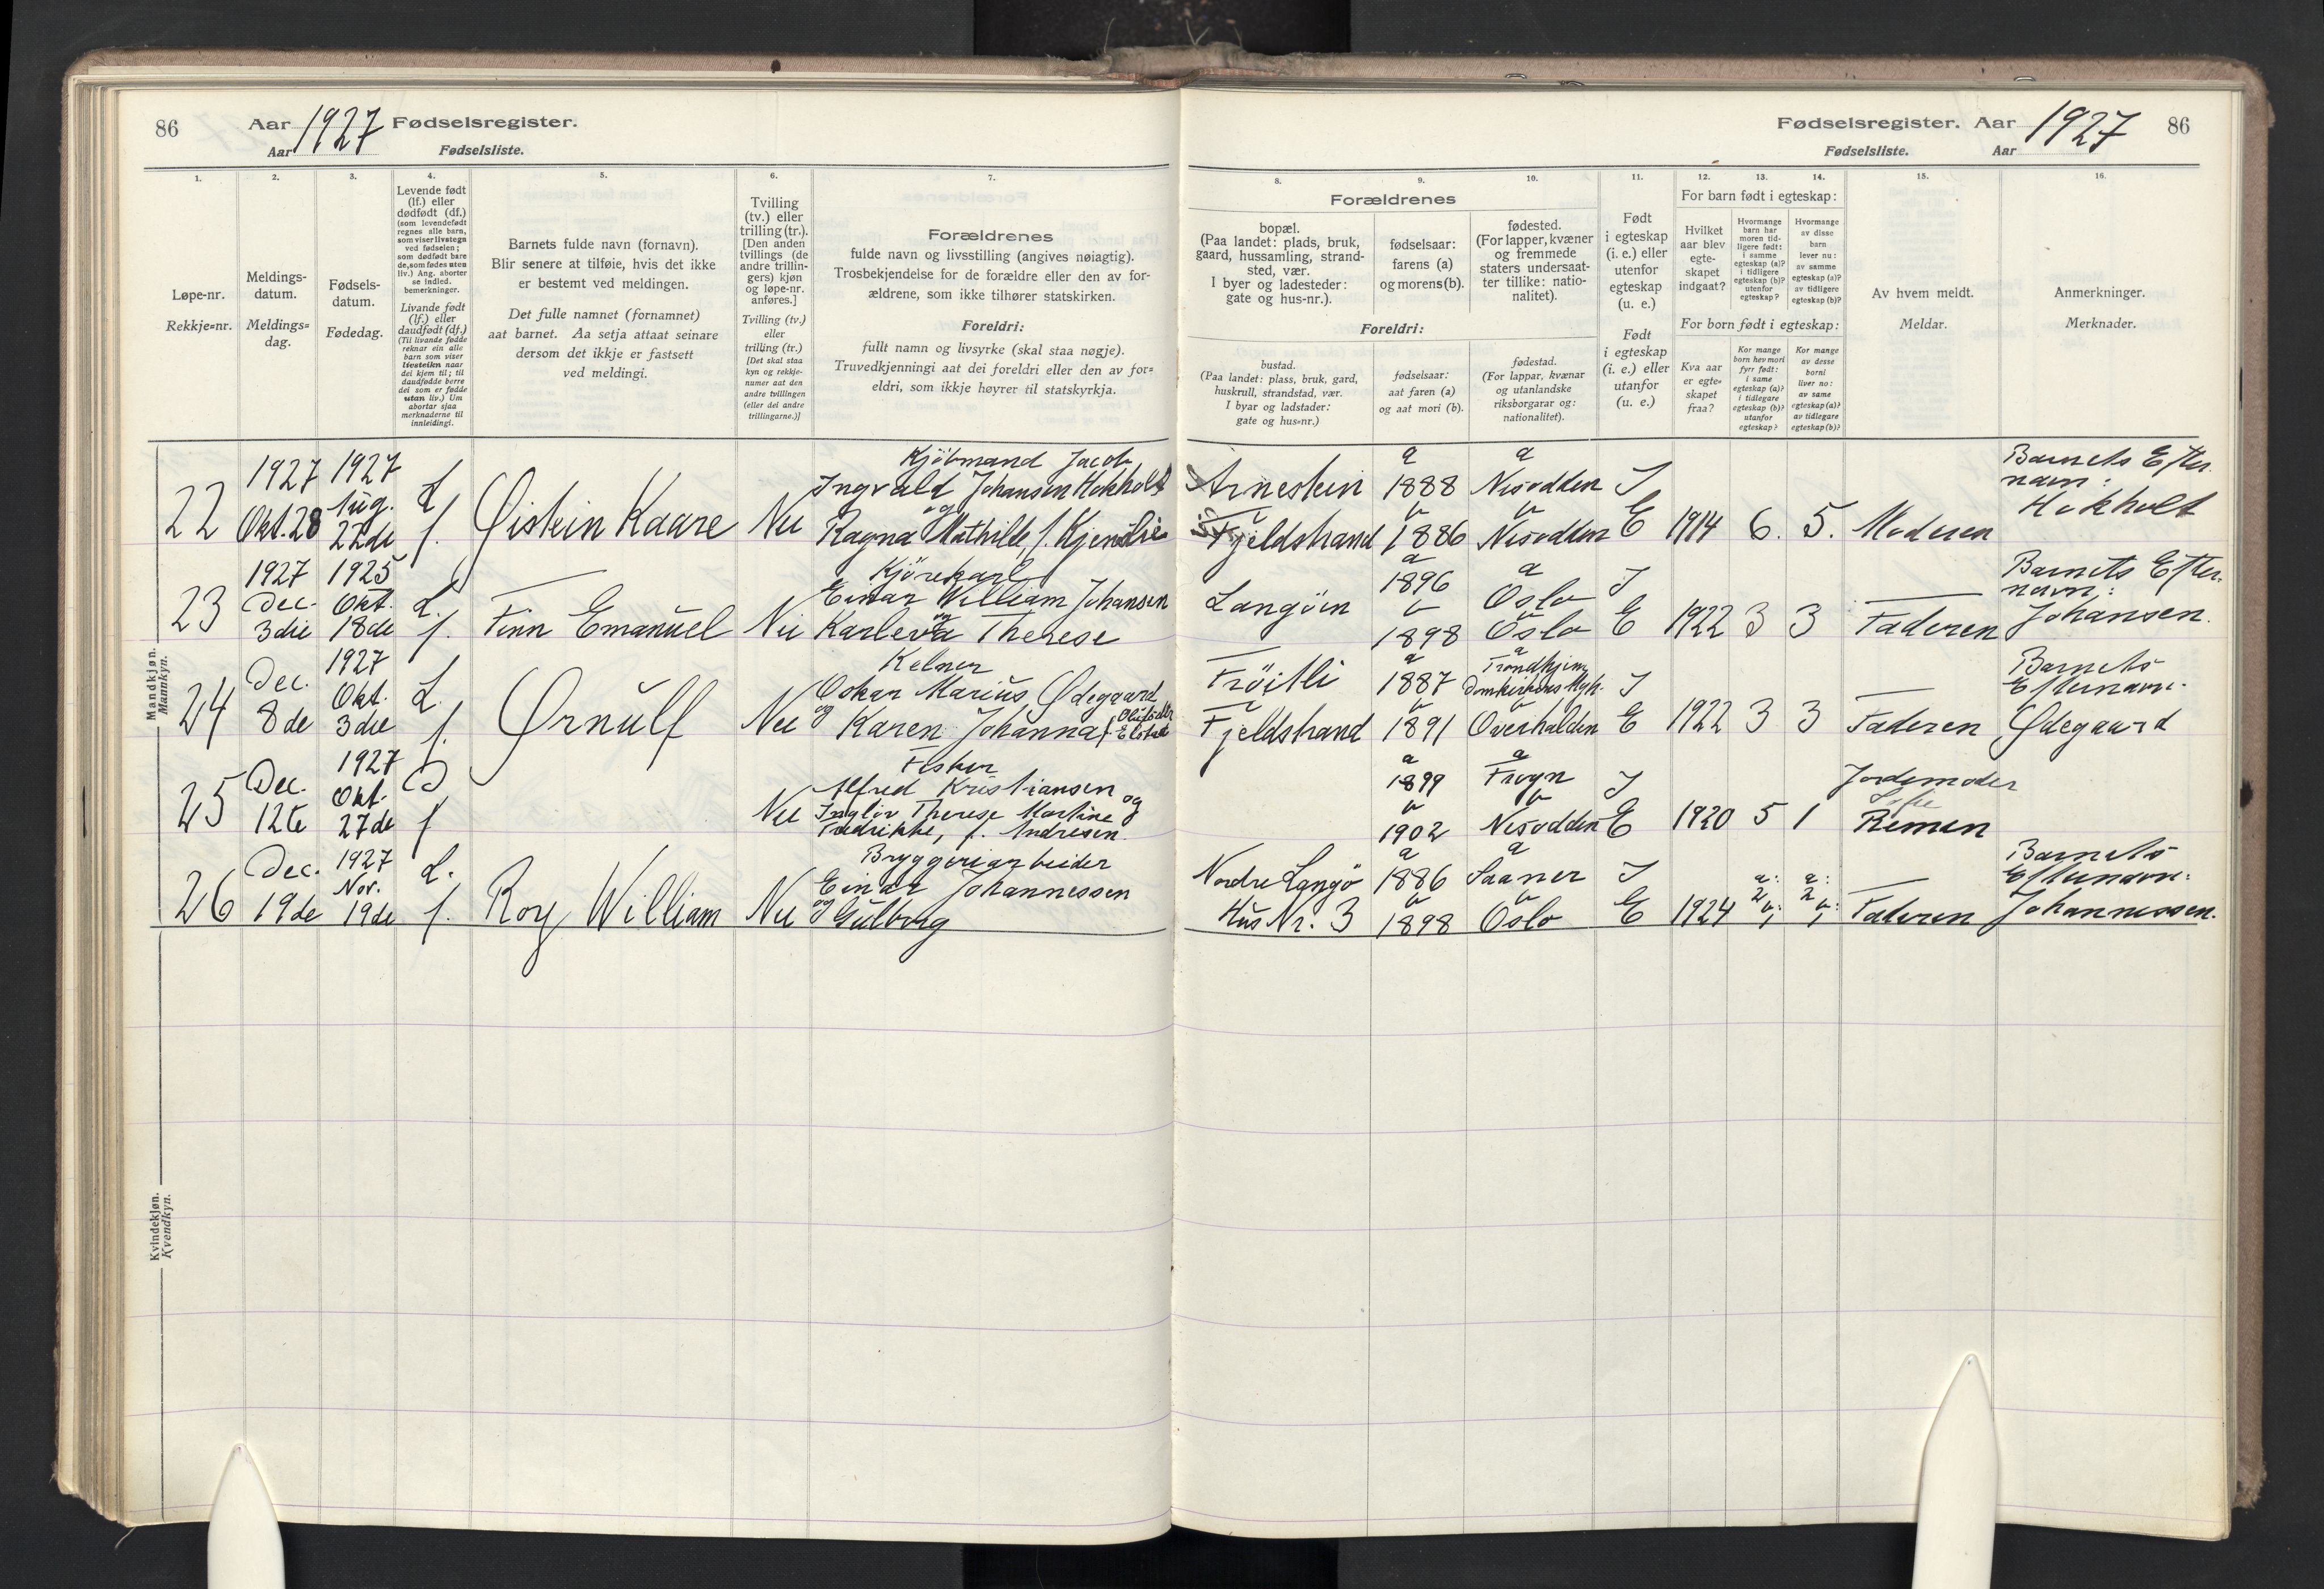 86 Aar 1927 Fødselsregister.
Aar Fødselsliste.
Fødselsregister. Aar 1927 86
Fødselsliste. Aar
1.
Løpe-nr.
Rekkje=nr.
2.
Meldings-
datum.
Meldings=
dag.
3.
Fødsels-
datum.
Fødedag.
4.
Levende født
(lf.) eller
dødfødt (df.)
(som levendefødt
regnes alle barn,
som viser livstegn
ved fødselen;
som dødfødt bare
de, som fødes uten
liv.) Ang. aborter
se indled.
bemerkninger.
Livande født
(lf.) eller
daudfødt (df.)
(Til livande fødde
reknar ein alle
barn som viser
livsteikn naar
dei kjem til; til
daudfødde berre
dei som er fødde
utan liv.) Um
abortar sjaa
merknaderne til
innleidingi.
5.
Barnets fulde navn (fornavn).
Blir senere at tilføie, hvis det ikke
er bestemt ved meldingen.
Det fulle namnet (fornamnet)
aat barnet. Aa setja attaat seinare
dersom det ikkje er fastsett
ved meldingi.
6.
Tvilling
(tv.) eller
trilling (tr.).
[Den anden
tvillings (de
andre trillin-
gers) kjøn
og løpe-nr.
anføres.]
Tvilling (tv.)
eller
trilling (tr.)
[Det skal staa
kyn og rekkje-
numer aat den
andre tvillingen
(eller dei andre
trillingarne.)]
7.
Forældrenes
fulde navn og livsstilling (angives nøiagtig).
Trosbekjendelse for de forældre eller den av for-
ældrene, som ikke tilhører statskirken.
Foreldri:
fullt namn og livsyrke (skal staa nøgje).
Truvedkjenningi aat dei foreldri eller den av for=
eldri, som ikkje høyrer til statskyrkja.
8. 9. 10.
Forældrenes
bopæl.
(Paa landet: plads, bruk,
gaard, hussamling, strand-
sted, vær.
I byer og ladesteder:
gate og hus-nr.).
fødselsaar:
farens (a)
og morens (b).
fødested.
(For lapper, kvæner
og fremmede
staters undersaat-
ter tillike: natio-
nalitet).
Foreldri:
bustad.
(Paa landet: plass, bruk, gard,
huskrull, strandstad, vær.
I byar og ladstader:
gate og hus=nr.)
fødselsaar:
aat faren (a)
og aat mori (b).
fødestad.
(For lappar, kvænar
og utanlandske
riksborgarar og:
nationalitet).
11.
Født
i egteskap
(i. e.) eller
utenfor
egteskap
(u. e.)
Født
i egteskap
(i. e.) eller
utanfor
(u. e.)
12. 13. 14.
For barn født i egteskap:
Hvilket
aar blev
egte-
skapet
indgaat?
Hvormange
barn har
moren tid-
ligere født:
i samme
egteskap (a)?
i tidligere
egteskap (b)?
utenfor
egteskap?
Hvormange
av disse
barn
lever nu:
av samme
egteskap (a)?
av tidligere
egteskap (b)?
For born født i egteskap:
Kva aar
er egte=
skapet
fraa?
Kor mange
born hev mori
fyrr født:
i same
egteskap (a)?
i tidlegare
egteskap (b)?
utanfor
egteskap?
Kor mange
av desse
borni
liver no:
av same
egteskap (a)?
av tidlegare
egteskap (b)?
15.
Av hvem meldt.
Meldar.
16.
Anmerkninger.
Merknader.
Mandkjøn.
Mannkyn.
22
1927
Okt. 28
1927
Aug.
22de
L
f.
Øistein Kaare
Nei
Kjøbmand Jacob
Ingvald Johansen Hokholt
og
Ragna Mathilde, f.
Arnestein
Fjeldstrand
a
1888
b
1886
a
Nesodden
b
Nesodden
I
E
1914
6.
5.
Moderen
Barnets Efter
navn:
Hokholt
23
1927
Dec.
3die
1925
Okt.
18de
L.
f.
Finn Emanuel
Nei
Kjørekarl
Einar William Johansen
og
Therese
Langøen
a
1896
b
1898
a
Oslo
b
Oslo
I
E
1922
3
3
Faderen
Barnets Efter-
navn:
Johansen.
24
Dec.
8de
1927
Okt.
3die
L.
f.
Ørnulf
Nei
Kelner
Oskar Marius Ødegaard
og Karen Johanna f.
Fjeldstrand
a
1887
b
1891
a
Trondhjem
b
Overhalden
I
E
1922
3
3
Faderen
Barnets
Efternavn:
Ødegaard
25
Dec.
12te
1927
Okt.
27de
D
f
Nei
Fisker
Alfred Kristiansen
og
Therese Martine
Fredrikke, f. Andresen.
a
1899
b
1902
a
Frogn
b
Nesodden
I
E
1920
5
1
Jordemoder
26
Dec.
19de
1927
Nov.
19de
L.
f.
Roy William
Nei
Bryggeriarbeider
Einar Johannessen
og Gulborg
Nordre Langø
Hus Nr. 3
a
1886
b
1898
a
Saaner
b
Oslo
I
E
1924
a:
2 b:
1
a:
2 b:
1
Faderen
Barnets
Efternavn:
Johannessen.
Kvindekjøn.
Kvendkyn.